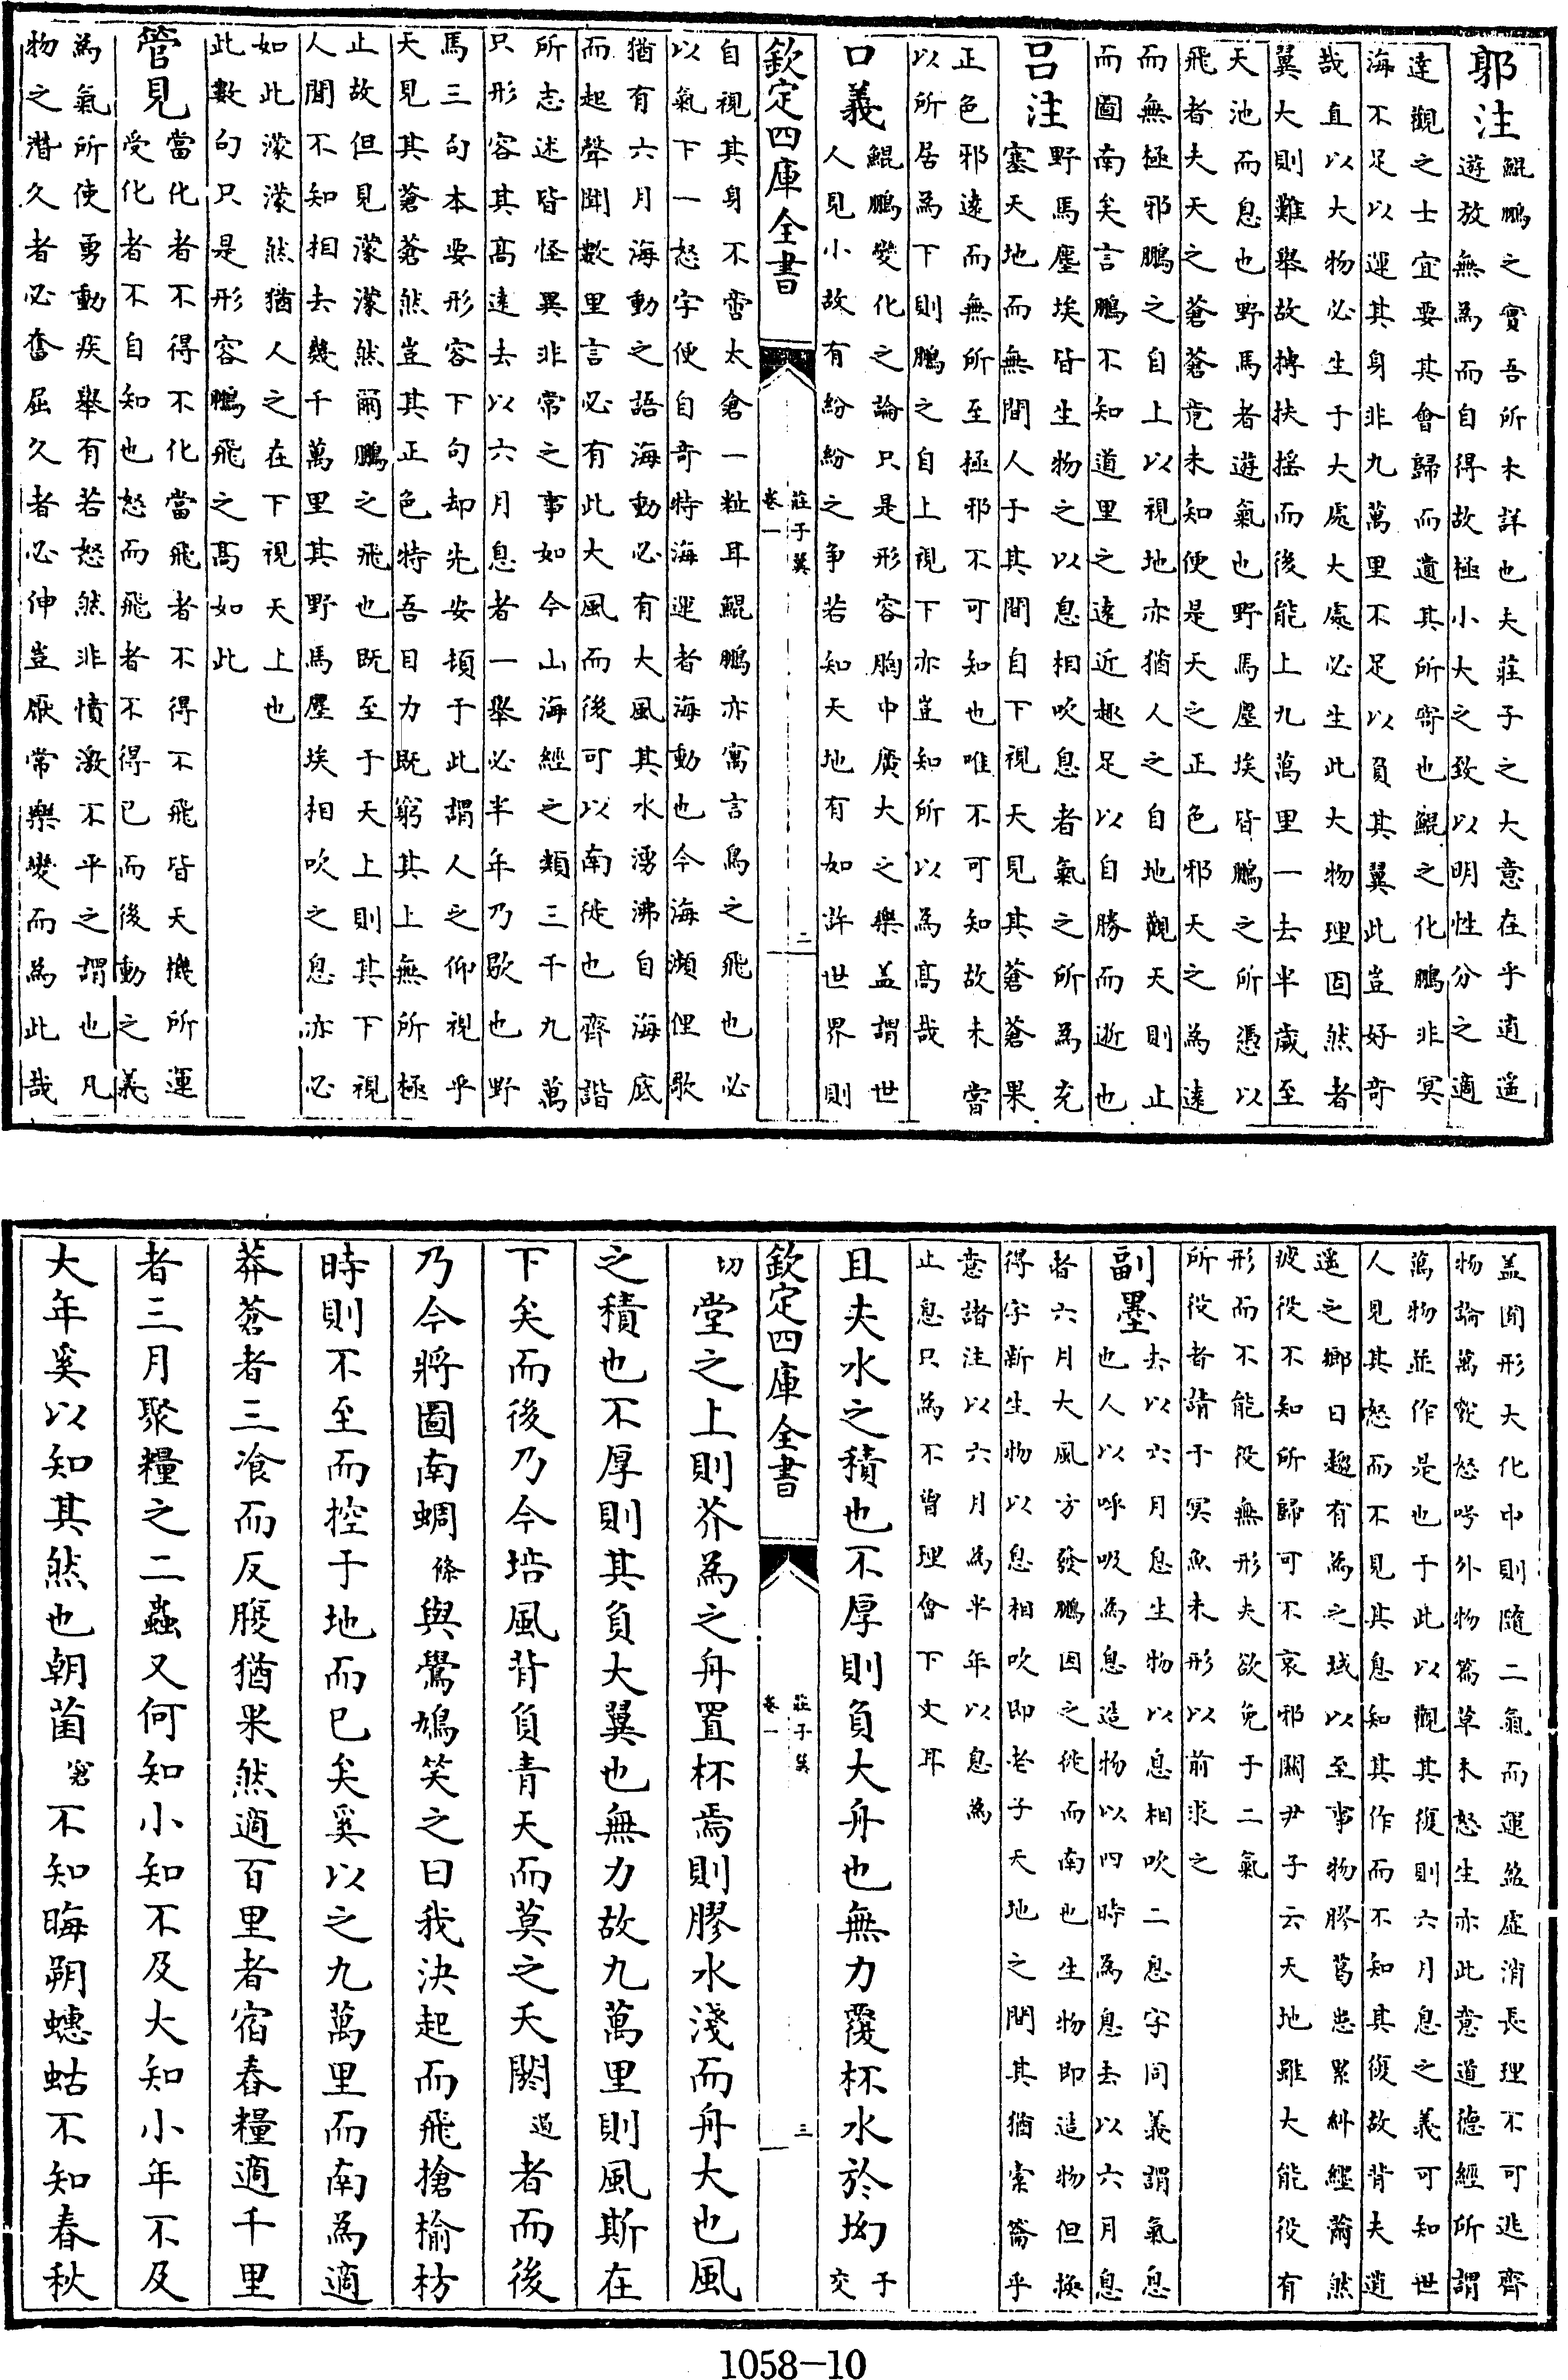 郭注
鯤鵬之實吾所未詳也夫莊子之大意在乎逍遙
遊放無為而自得故極小大之致以明性分之適
達觀之士宜要其會歸而遺其所寄也鯤之化鵬非冥
海不足以運其身非九萬里不足以負其翼此豈好奇
哉直以大物必生于大處大處必生此大物理固然者
翼大則難舉故摶扶搖而後能上九萬里一去半歲至
天池而息也野馬者遊氣也野馬塵埃皆鵬之所憑以
飛者夫天之蒼蒼竟未知便是天之正色邪天之為遠
而無極邪鵬之自上以視地亦猶人之自地觀天則止
而圖南矣言鵬不知道里之遠近趣足以自勝而逝也
呂注
野馬塵埃皆生物之以息相吹息者氣之所為充
塞天地而無間人于其間自下視天見其蒼蒼果
正色邪遠而無所至極邪不可知也唯不可知故未嘗
以所居為下則鵬之自上視下亦豈知所以為高哉
口義
鯤鵬變化之論只是形容胸中廣大之樂盖謂世
人見小故有紛紛之争若知天地有如許世界則
欽定四庫全書
莊子翼
卷一
二
自視其身不啻太倉一粒耳鯤鵬亦寓言鳥之飛也必
以氣下一怒字便自奇特海運者海動也今海瀕俚歌
猶有六月海動之語海動必有大風其水湧沸自海底
而起聲聞數里言必有此大風而後可以南徙也齊諧
所志述皆怪異非常之事如今山海經之類三千九萬
只形容其高遠去以六月息者一舉必半年乃歇也野
馬三句本要形容下句却先安頓于此謂人之仰視乎
天見其蒼蒼然豈其正色特吾目力既窮其上無所極
止故但見濛濛然爾鵬之飛也既至于天上則其下視
人間不知相去幾千萬里其野馬塵埃相吹之息亦必
如此濛濛然猶人之在下視天上也
此數句只是形容鵬飛之高如此
管見
當化者不得不化當飛者不得不飛皆天機所運
受化者不自知也怒而飛者不得已而後動之義
為氣所使勇動疾舉有若怒然非憤激不平之謂也凡
物之潛久者必奮屈久者必伸豈厭常樂變而為此哉
盖囿形大化中則隨二氣而運盈虛消長理不可逃齊
物論萬竅怒呺外物篇草木怒生亦此意道德經所謂
萬物並作是也于此以觀其復則六月息之義可知世
人見其怒而不見其息知其作而不知其復故背夫逍
遙之鄉日趨有為之域以至事物膠葛患累糾纒薾然
疲役不知所歸可不哀邪關尹子云天地雖大能役有
形而不能役無形夫欲免于二氣
所役者請于冥魚未形以前求之
副墨
去以六月息生物以息相吹二息字同義謂氣息
也人以呼吸為息造物以四時為息去以六月息
者六月大風方發鵬因之徙而南也生物即造物但換
得字新生物以息相吹即老子天地之間其猶橐籥乎
意諸注以六月為半年以息為
止息只為不曾理會下文耳
且夫水之積也不厚則負大舟也無力覆杯水於坳于交
切堂之上則芥為之舟置杯焉則膠水淺而舟大也風
之積也不厚則其負大翼也無力故九萬里則風斯在
下矣而後乃今培風背負青天而莫之夭閼遏者而後
乃今將圖南蜩條與鷽鳩笑之曰我決起而飛搶榆枋
時則不至而控于地而已矣奚以之九萬里而南為適
莽蒼者三飡而反腹猶果然適百里者宿舂糧適千里
者三月聚糧之二蟲又何知小知不及大知小年不及
大年奚以知其然也朝菌窘不知晦朔蟪蛄不知春秋
欽定四庫全書
莊子翼
卷一
三
1058-10